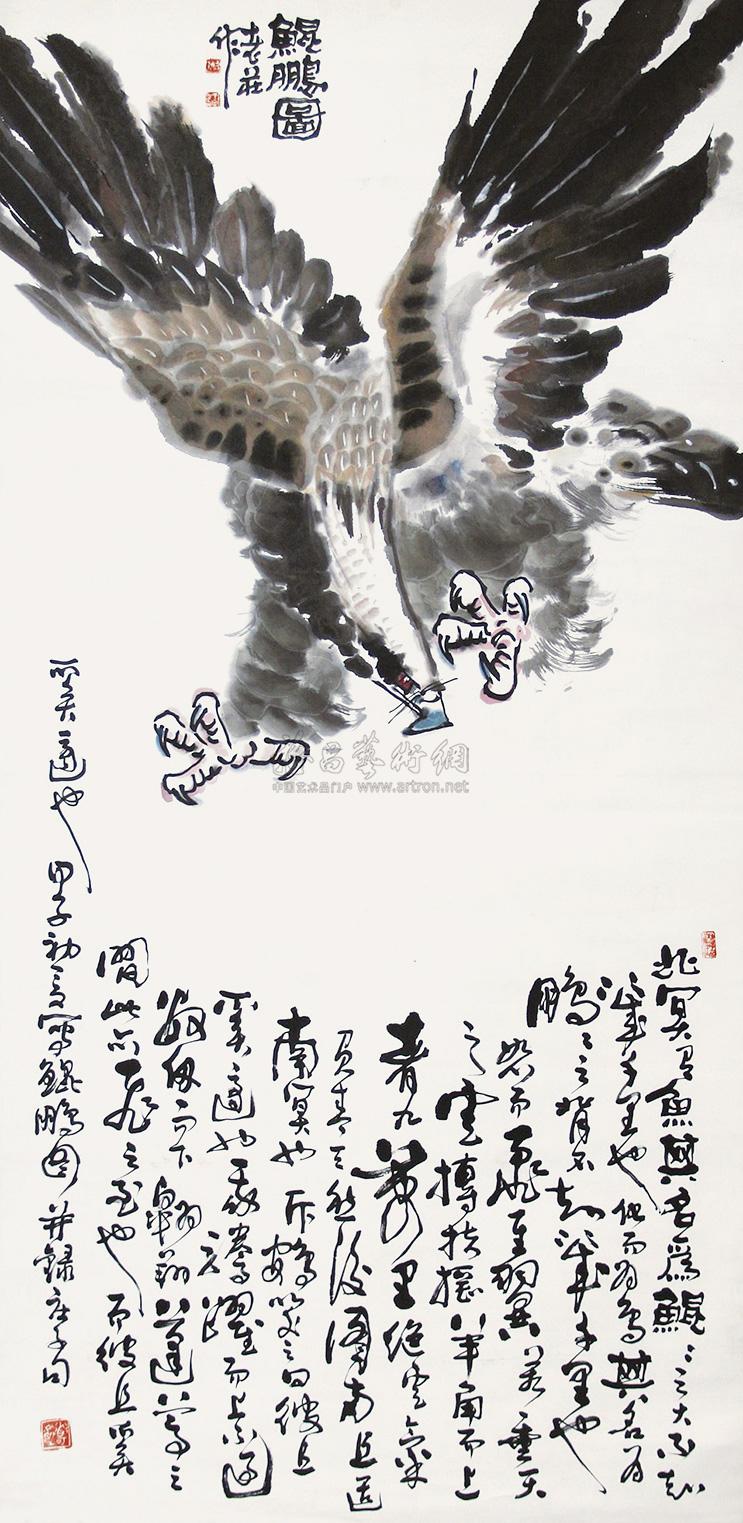 鯤鵬圖
老莊
作
雅昌藝術網
中国艺术品门户 www.artron.net
北冥有魚其名為鯤〻之大不知
幾千里也化而為鳥其名為
鵬〻之背不知幾千里也
怒而飛其翼若垂天
之雲摶扶搖羊角而上
者九萬里絕雲氣
負青天然後圖南且適
南冥也斥鴳笑之曰彼且
奚適也我騰躍而上不過
數仞而下翱翔蓬蒿之
間此亦飛之至也而彼且奚
奚適也 甲子初夏寫鯤鵬圖并錄庄子句